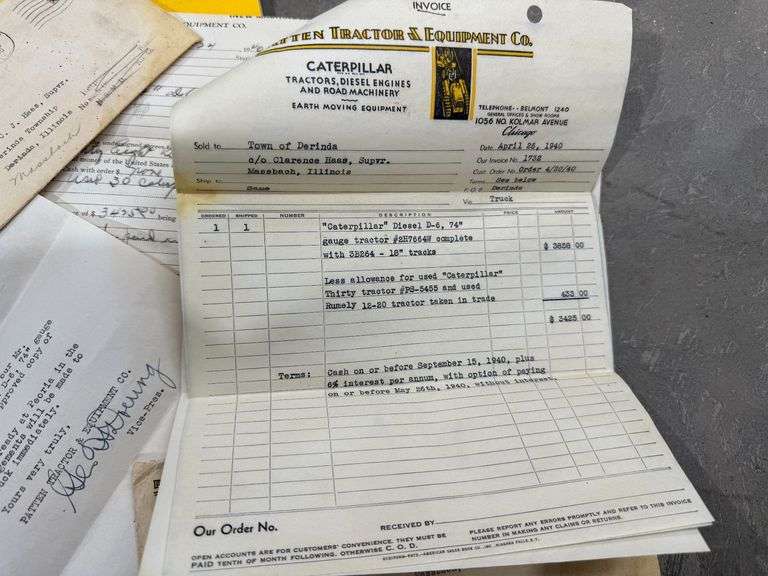 INVOICE
TRACTOR & EQUIPMENT CO.
CATERPILLAR
TRACTORS, DIESEL ENGINES
AND ROAD MACHINERY
EARTH MOVING EQUIPMENT
TELEPHONE - BELMONT 1240
GENERAL OFFICES & SHOW ROOMS
1056 NO. KOLMAR AVENUE
Chicago
Sold to Town of Derinda
c/o Clarence Haas, Supvr.
Massbach, Illinois
Ship to Same
Date April 26, 1940
Our Invoice No. 1732
Cust. Order No. Order 4/20/40
Terms See below
F.O.B. Derinda
Via Truck
ORDERED SHIPPED NUMBER DESCRIPTION PRICE AMOUNT
1 1 "Caterpillar" Diesel D-6, 74"
gauge tractor #2H7664W complete
with 3B264 - 18" tracks $ 3858 00
Less allowance for used "Caterpillar"
Thirty tractor #PS-5455 and used
Rumely 12-20 tractor taken in trade 433 00
$ 3425 00
Terms: Cash on or before September 15, 1940, plus
6% interest per annum, with option of paying
on or before May 26th, 1940, without interest.
Our Order No.
RECEIVED BY
PLEASE REPORT ANY ERRORS PROMPTLY AND REFER TO THIS INVOICE
NUMBER IN MAKING ANY CLAIMS OR RETURNS.
OPEN ACCOUNTS ARE FOR CUSTOMERS' CONVENIENCE. THEY MUST BE
PAID TENTH OF MONTH FOLLOWING. OTHERWISE C. O. D.
Haas, Supvr.
Township
Derinda, Illinois
Massbach
our Mr.
D-6, 74" gauge
approved copy of
ready at Peoria in the
will be made to
immediately.
Yours very truly,
PATTEN TRACTOR & EQUIPMENT CO.
Vice-Pres.